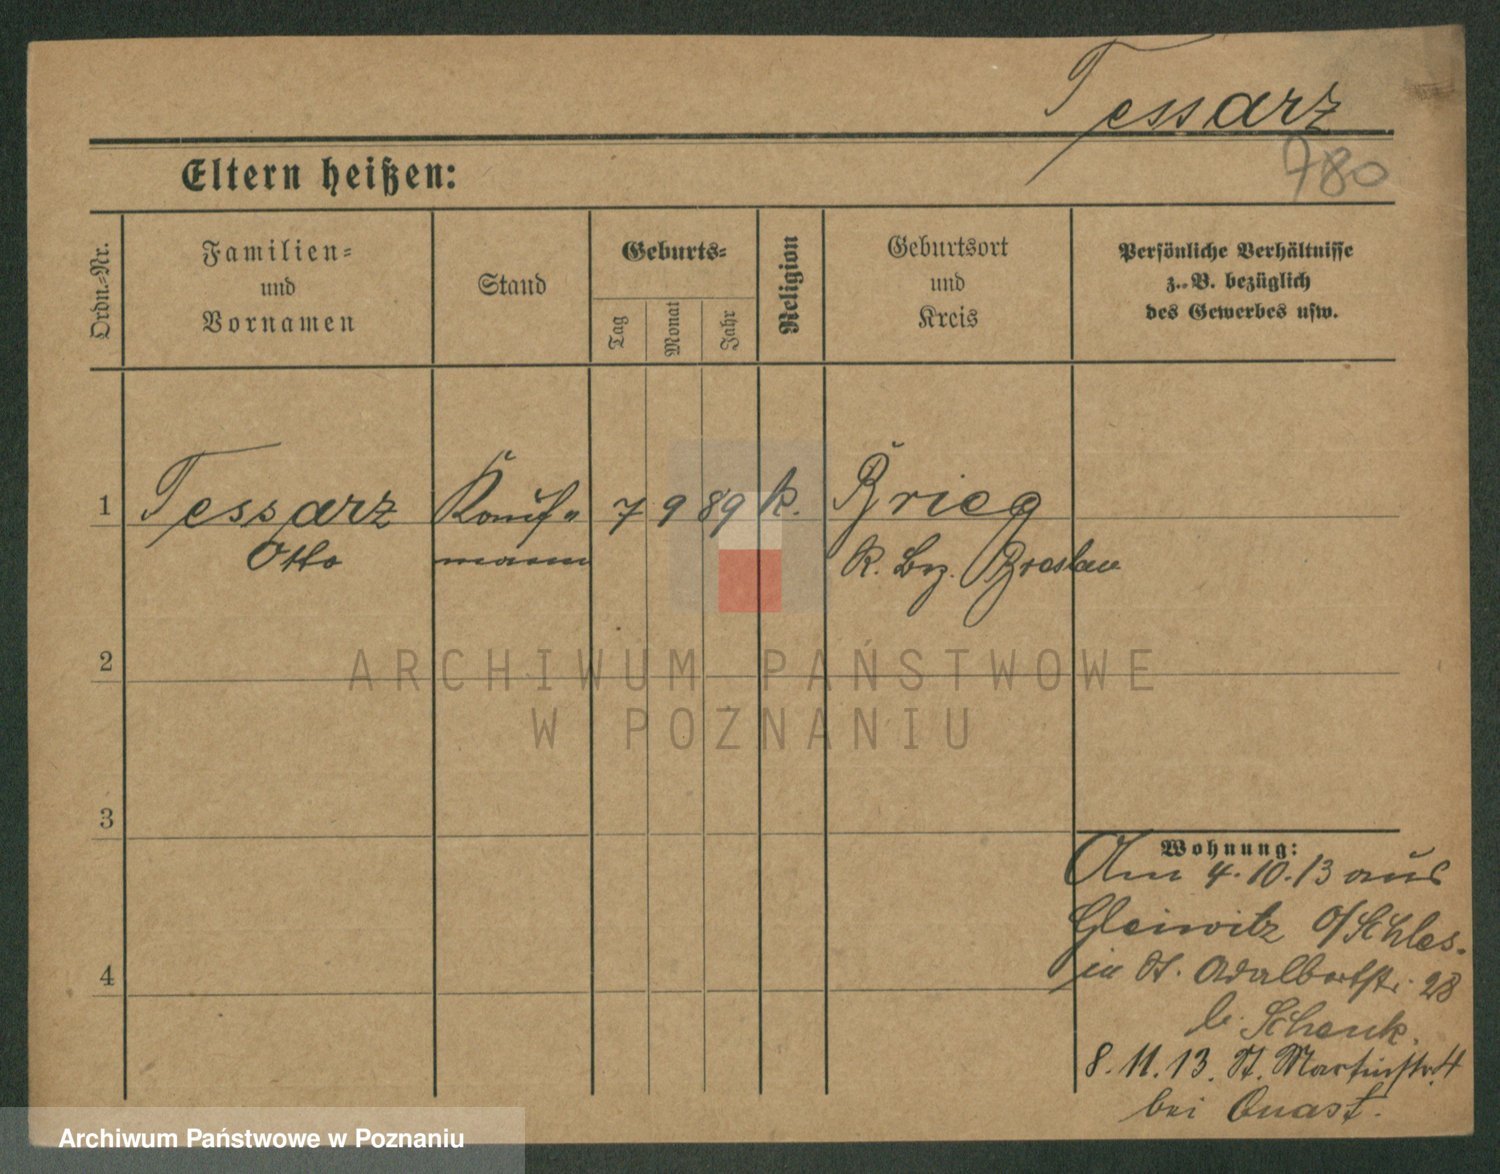 Tessarz
780
Eltern heißen:
Ordn.-Nr.
Familien-
und
Vornamen
Stand
Geburts-
Tag
Monat
Jahr
Religion
Geburtsort
und
Kreis
Persönliche Verhältnisse
z. B. bezüglich
des Gewerbes usw.
1 Tessarz Kauf" 7 9 89 k. Brieg
Otto mann K. Brz. Breslau
ARCHIWUM PAŃSTWOWE
2
W POZNANIU
3
Wohnung:
Am 4.10.13 aus
Gleiwitz O/Schles.
4
in St. Adalbertstr. 28
b. Schenk.
8.11.13. St. Martinstr. 4
bei Quast.
Archiwum Państwowe w Poznaniu